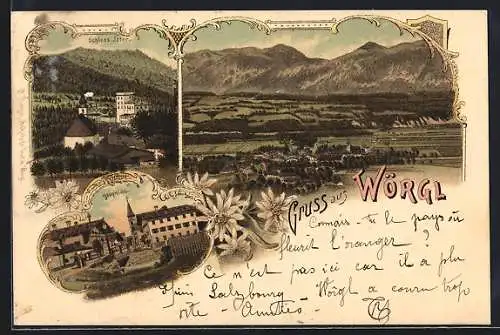 Schloss Itter.
Gruss aus WÖRGL
Connais-tu le pays où
fleurit l'oranger ?
Ce n'est pas ici car il a plu
Salzbourg — Wörgl a couru trop
vite — Amitiés —